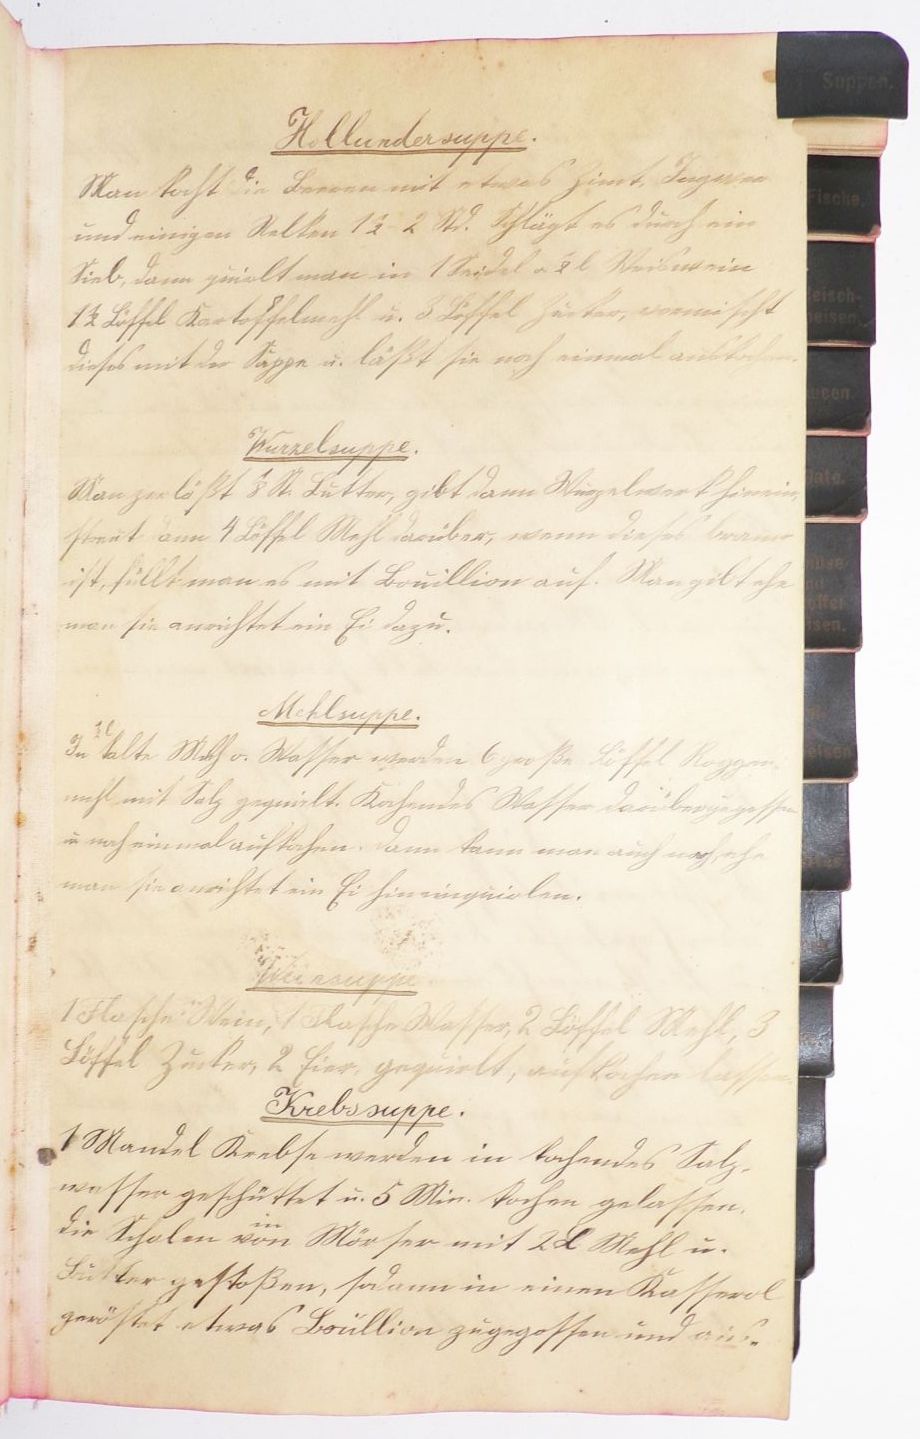 Suppen.
Hollundersuppe.
Man kocht die Beeren mit etwas Zimt, Ingwer
und einigen Nelken 1½ - 2 Std. Schlägt es durch ein
Sieb, dann quirlt man in 1 Seidel o. l Weißwein
1½ Löffel Kartoffelmehl u. 3 Löffel Zucker, vermischt
dieses mit der Suppe u. läßt sie noch einmal aufkochen.
Fische.
Wurzelsuppe.
Man zerläßt ⅛ ℔. Butter, gibt dann Wurzelwerk hinein,
streut dann 4 Löffel Mehl darüber, wenn dieses braun
ist, füllt man es mit Bouillion auf. Man gibt ehe
man sie anrichtet ein Ei dazu.
Mehlsuppe.
In ½ l kalte Milch o. Wasser werden 6 große Löffel Roggen-
mehl mit Salz gequirlt. Kochendes Wasser darübergegossen
u noch einmal aufkochen. Dann kann man auch noch ehe
man sie anrichtet ein Ei hineinquirlen.
1 Flasche Wein, 1 Flasche Wasser, 2 Löffel Mehl, 3
Löffel Zucker, 2 Eier, gequirlt, aufkochen lassen.
Krebssuppe.
1 Mandel Krebse werden in kochendes Salz-
wasser geschüttet u. 5 Min. kochen gelassen,
die Schalen von in Mörser mit 2 L Mehl u.
Butter gestoßen, sodann in einen Kasserol
geröstet etwas Boüllion zugegossen und aus-